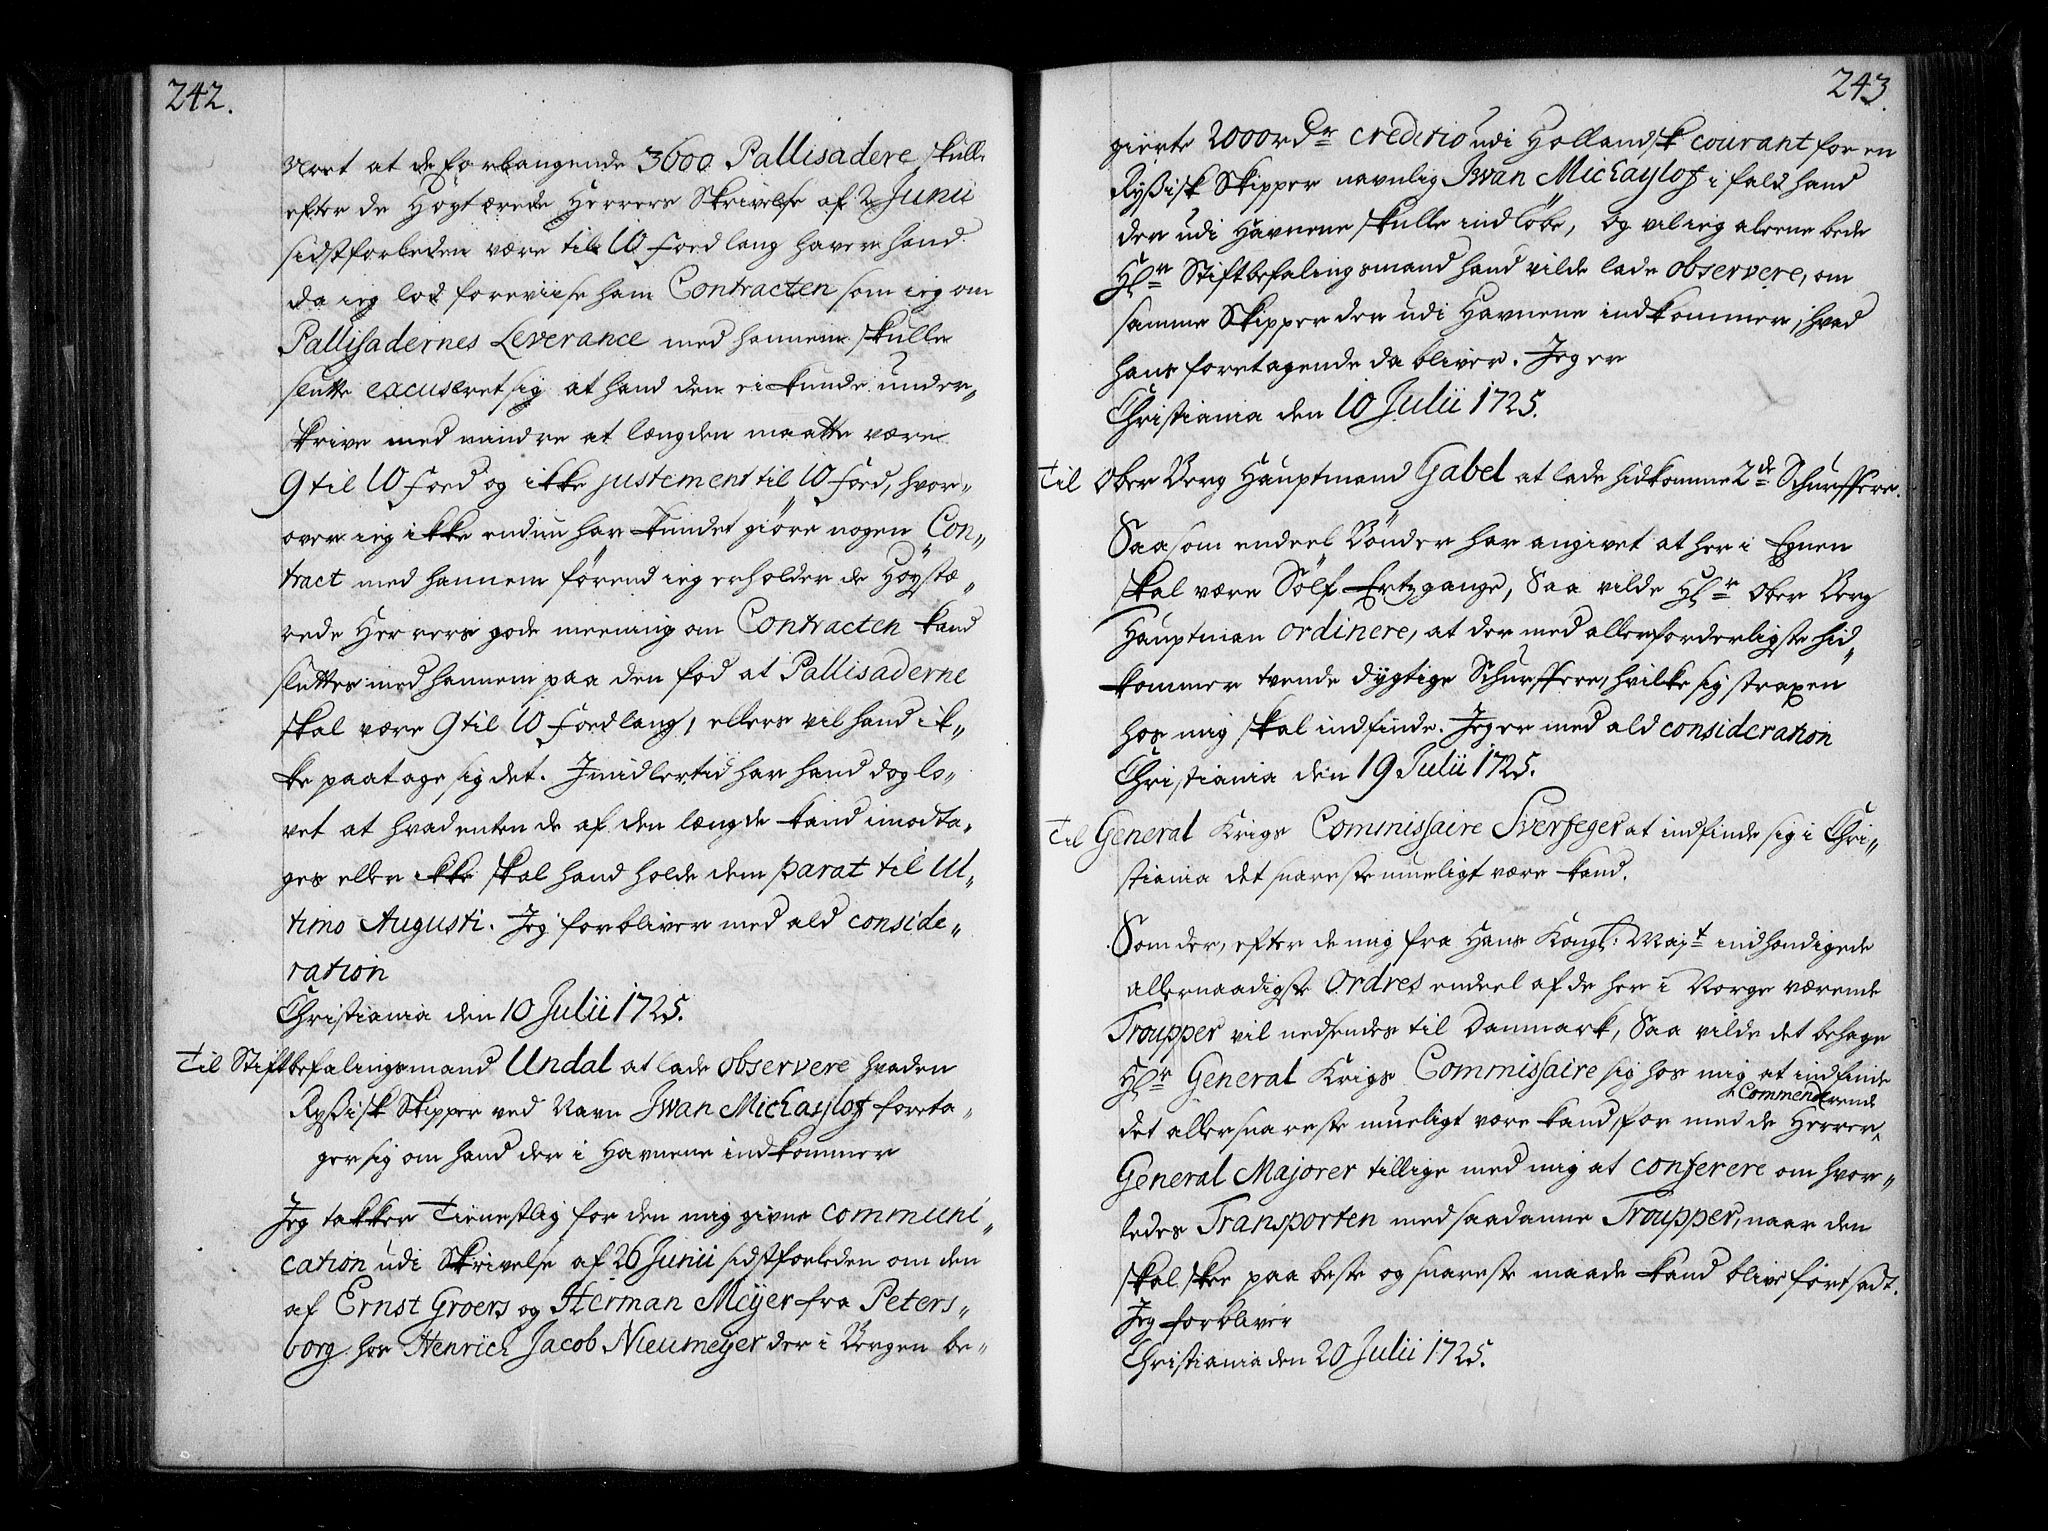 242.
vret at de forlangende 3600 Pallisadere skulle
efter de Høytærede Herrers Skrivelse af 2 Junii
sidstforleden være til 10 Foed lang haver hand
da ieg lod foreviise ham Contracten som ieg om
Pallisadernes Leverance med hannem skulle
slutte excuseret sig at hand den ei kunde under„
skrive med mindre at længden maatte være
9 til 10 Foed og ikke justement til 10 Foed, hvor„
over ieg ikke endnu har kundet giöre nogen Con„
tract med hannem förend ieg erholder de Höystæ„
rede Herrers gode meening om Contracten kand
sluttes med hannem paa den fod at Pallisaderne
skal være 9 til 10 Foed lang, ellers vil hand ik„
ke paatage sig det. Imidlertid har hand dog lo„
vet at hvad enten de af den længde kand imodta„
ges eller ikke skal hand holde dem parat til Ul„
timo Augusti. Jeg forbliver med ald conside„
ration
Christiania den 10 Julii 1725.
Til Stiftbefalingsmand Undal at lade observere hvad en
Ryssisk Skipper ved Navn Iwan Michaylof foreta„
ger sig om hand der i Havnene indkommer
Jeg takker Tienestlig for den mig givne communi„
cation udi Skrivelse af 26 Junii sidstforleden om den
af Ernst Groers og Herman Meÿer fra Peters„
borg hos Henrich Jacob Nieumeÿer der i Bergen be„
243.
gierte 2000 rdr creditio udi Hollandsk courant for en
Ryssisk Skipper navnlig Iwan Michaylof i fald hand
der udi Havnene skulle indlöbe, og vil ieg aleene bede
Hr Stiftbefalingsmand hand vilde lade observere, om
samme Skipper der udi Havnene indkommer, hvad
hans foretagende da bliver. Jeg er
Christiania den 10 Julii 1725.
Til Ober Berg Hauptmand Gabel at lade hidkomme 2de Schurffere.
Saasom endeel Bönder har angivet at her i Egnen
skal være Sölf Ertzgange, Saa vilde Hr Ober Berg
Hauptman ordinere, at der med allerforderligste hid„
kommer tvende dygtige Schurffere, hvilke sig straxen
hos mig skal indfinde. Jeg er med ald consideration
Christiania den 19 Julii 1725.
Til General Krigs Commissaire Sverfeger at indfinde sig i Chri„
stiania det snareste mueligt være kand.
Som der, efter de mig fra Hans Kongl: Mayt indhændigede
allernaadigste Ordres endeel af de her i Norge værende
Troupper vil nedsendes til Danmark, Saa vilde det behage
Hr General Krigs Commissaire sig hos mig at indfinde
Commenderende
det allersnareste mueligt være kand for med de Herrer
General Majorer tillige med mig at conferere om hvor„
ledes Transporten med saadanne Troupper, naar den
skal skee paa beste og snareste maade kand blive fortsadt.
Jeg forbliver
Christiania den 20 Julii 1725.